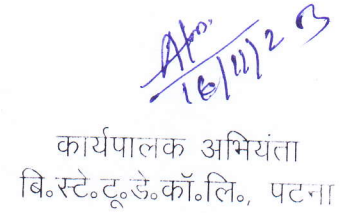 16/11/23
कार्यपालक अभियंता
बि॰स्टे॰टू॰डे॰कॉ॰लि॰, पटना